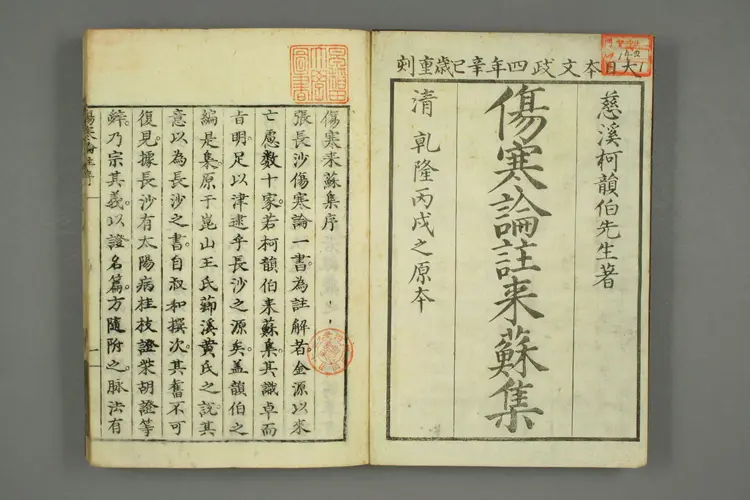 大日本文政四年辛巳歳重刻
慈溪柯韻伯先生著
傷寒論註来蘇集
清乾隆丙戌之原本
傷寒来蘇集序
張長沙傷寒論一書為註解者金源以来
亡慮数十家若柯韻伯来蘇集其識卓而
旨明足以津逮乎長沙之源矣蓋韻伯之
編是集原于崑山王氏蓈溪黄氏之説其
意以為長沙之書自叔和撰次其舊不可
復見據長沙有太陽病桂枝證柴胡證等
辭乃宗其義以證名篇方隨附之脉法有